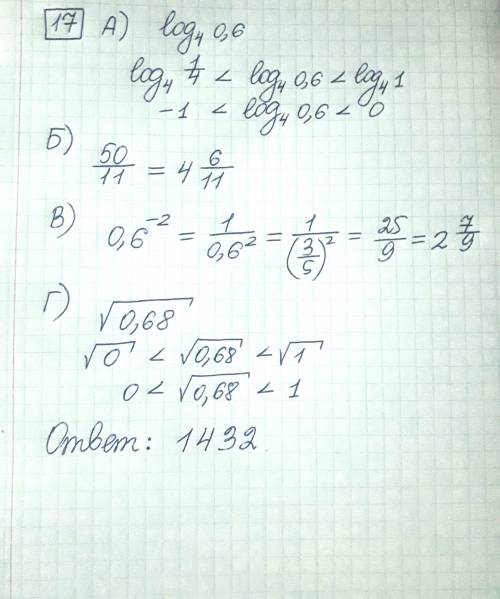 17 А) log₄ 0,6
log₄ 1/4 < log₄ 0,6 < log₄ 1
-1 < log₄ 0,6 < 0
Б) 50/11 = 4 6/11
В) 0,6⁻² = 1/0,6² = 1/(3/5)² = 25/9 = 2 7/9
Г) √0,68
√0 < √0,68 < √1
0 < √0,68 < 1
Ответ: 1432